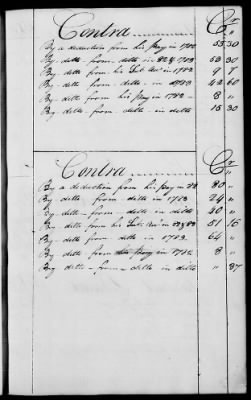 Contra Cr
By a deduction from his Pay in 1782 55 30
By ditto - from - ditto in 82 & 783 53 30
By ditto - from - his Sub. Acc't in 1782 9 9
By ditto - from - ditto - in 1783 42 60
By ditto - from his Pay in 1782 - 8 "
By ditto - from - ditto - in ditto 15 30
Contra Cr
By a deduction from his pay in 80 "
By ditto - from ditto in 1783 24 "
By ditto - from - ditto in ditto 40 "
By ditto from his Sub. Acc't in 51 16
By - ditto - from ditto in 1783 64 "
By ditto from his Pay in 1782 8 "
By ditto - from - ditto in ditto " 87